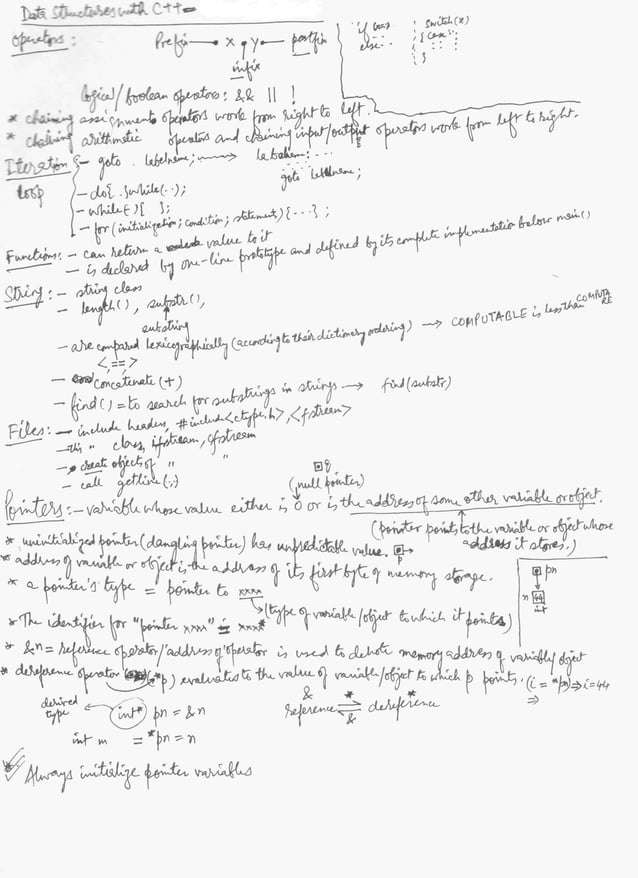 Data Structures with C++
Operators:
Prefix x . y postfix
infix
if (...) : Switch(x)
else... { Case ...
}
logical/boolean operators: && || !
* chaining assignments operators work from right to left.
* chaining arithmetic operators and chaining input/output operators work from left to right.
Iteration { - goto . labelname; labelname: ...
goto labelname;
loop
- do{ .}while(..);
- while( ) { };
- for (initialization; condition; statement) {...} ;
Functions: - can return a value to it
- is declared by one-line prototype and defined by its complete implementation below main()
String: - string class
- length(), substr(),
substring
- are compared lexicographically (according to their dictionary ordering) → COMPUTABLE is less than COMPUTARE
<, ==, >
- concatenate (+)
- find() = to search for substrings in strings → find(substr)
Files: - include headers, #include<ctype.h>, <fstream>
- this " class, ifstream, ofstream
- create object of " "
- call getline(,)
q
(null pointer)
Pointers: - variable whose value either is 0 or is the address of some other variable or object.
(pointer points to the variable or object whose address it stores.)
* uninitialized pointer (dangling pointer) has unpredictable value.
p
* address of variable or object is the address of its first byte of memory storage.
* a pointer's type = pointer to xxxx
(type of variable/object to which it points)
pn
n 44
int
* The identifier for "pointer xxxx" is xxxx*
* &n = reference operator/'address of' operator is used to denote memory address of variable/object
* dereference operator (*p) evaluates to the value of variable/object to which p points. (i = *pn) ⇒ i = 44
⇒
derived type
int* pn = &n
& reference * & dereference
int m = *pn = n
* Always initialize pointer variables